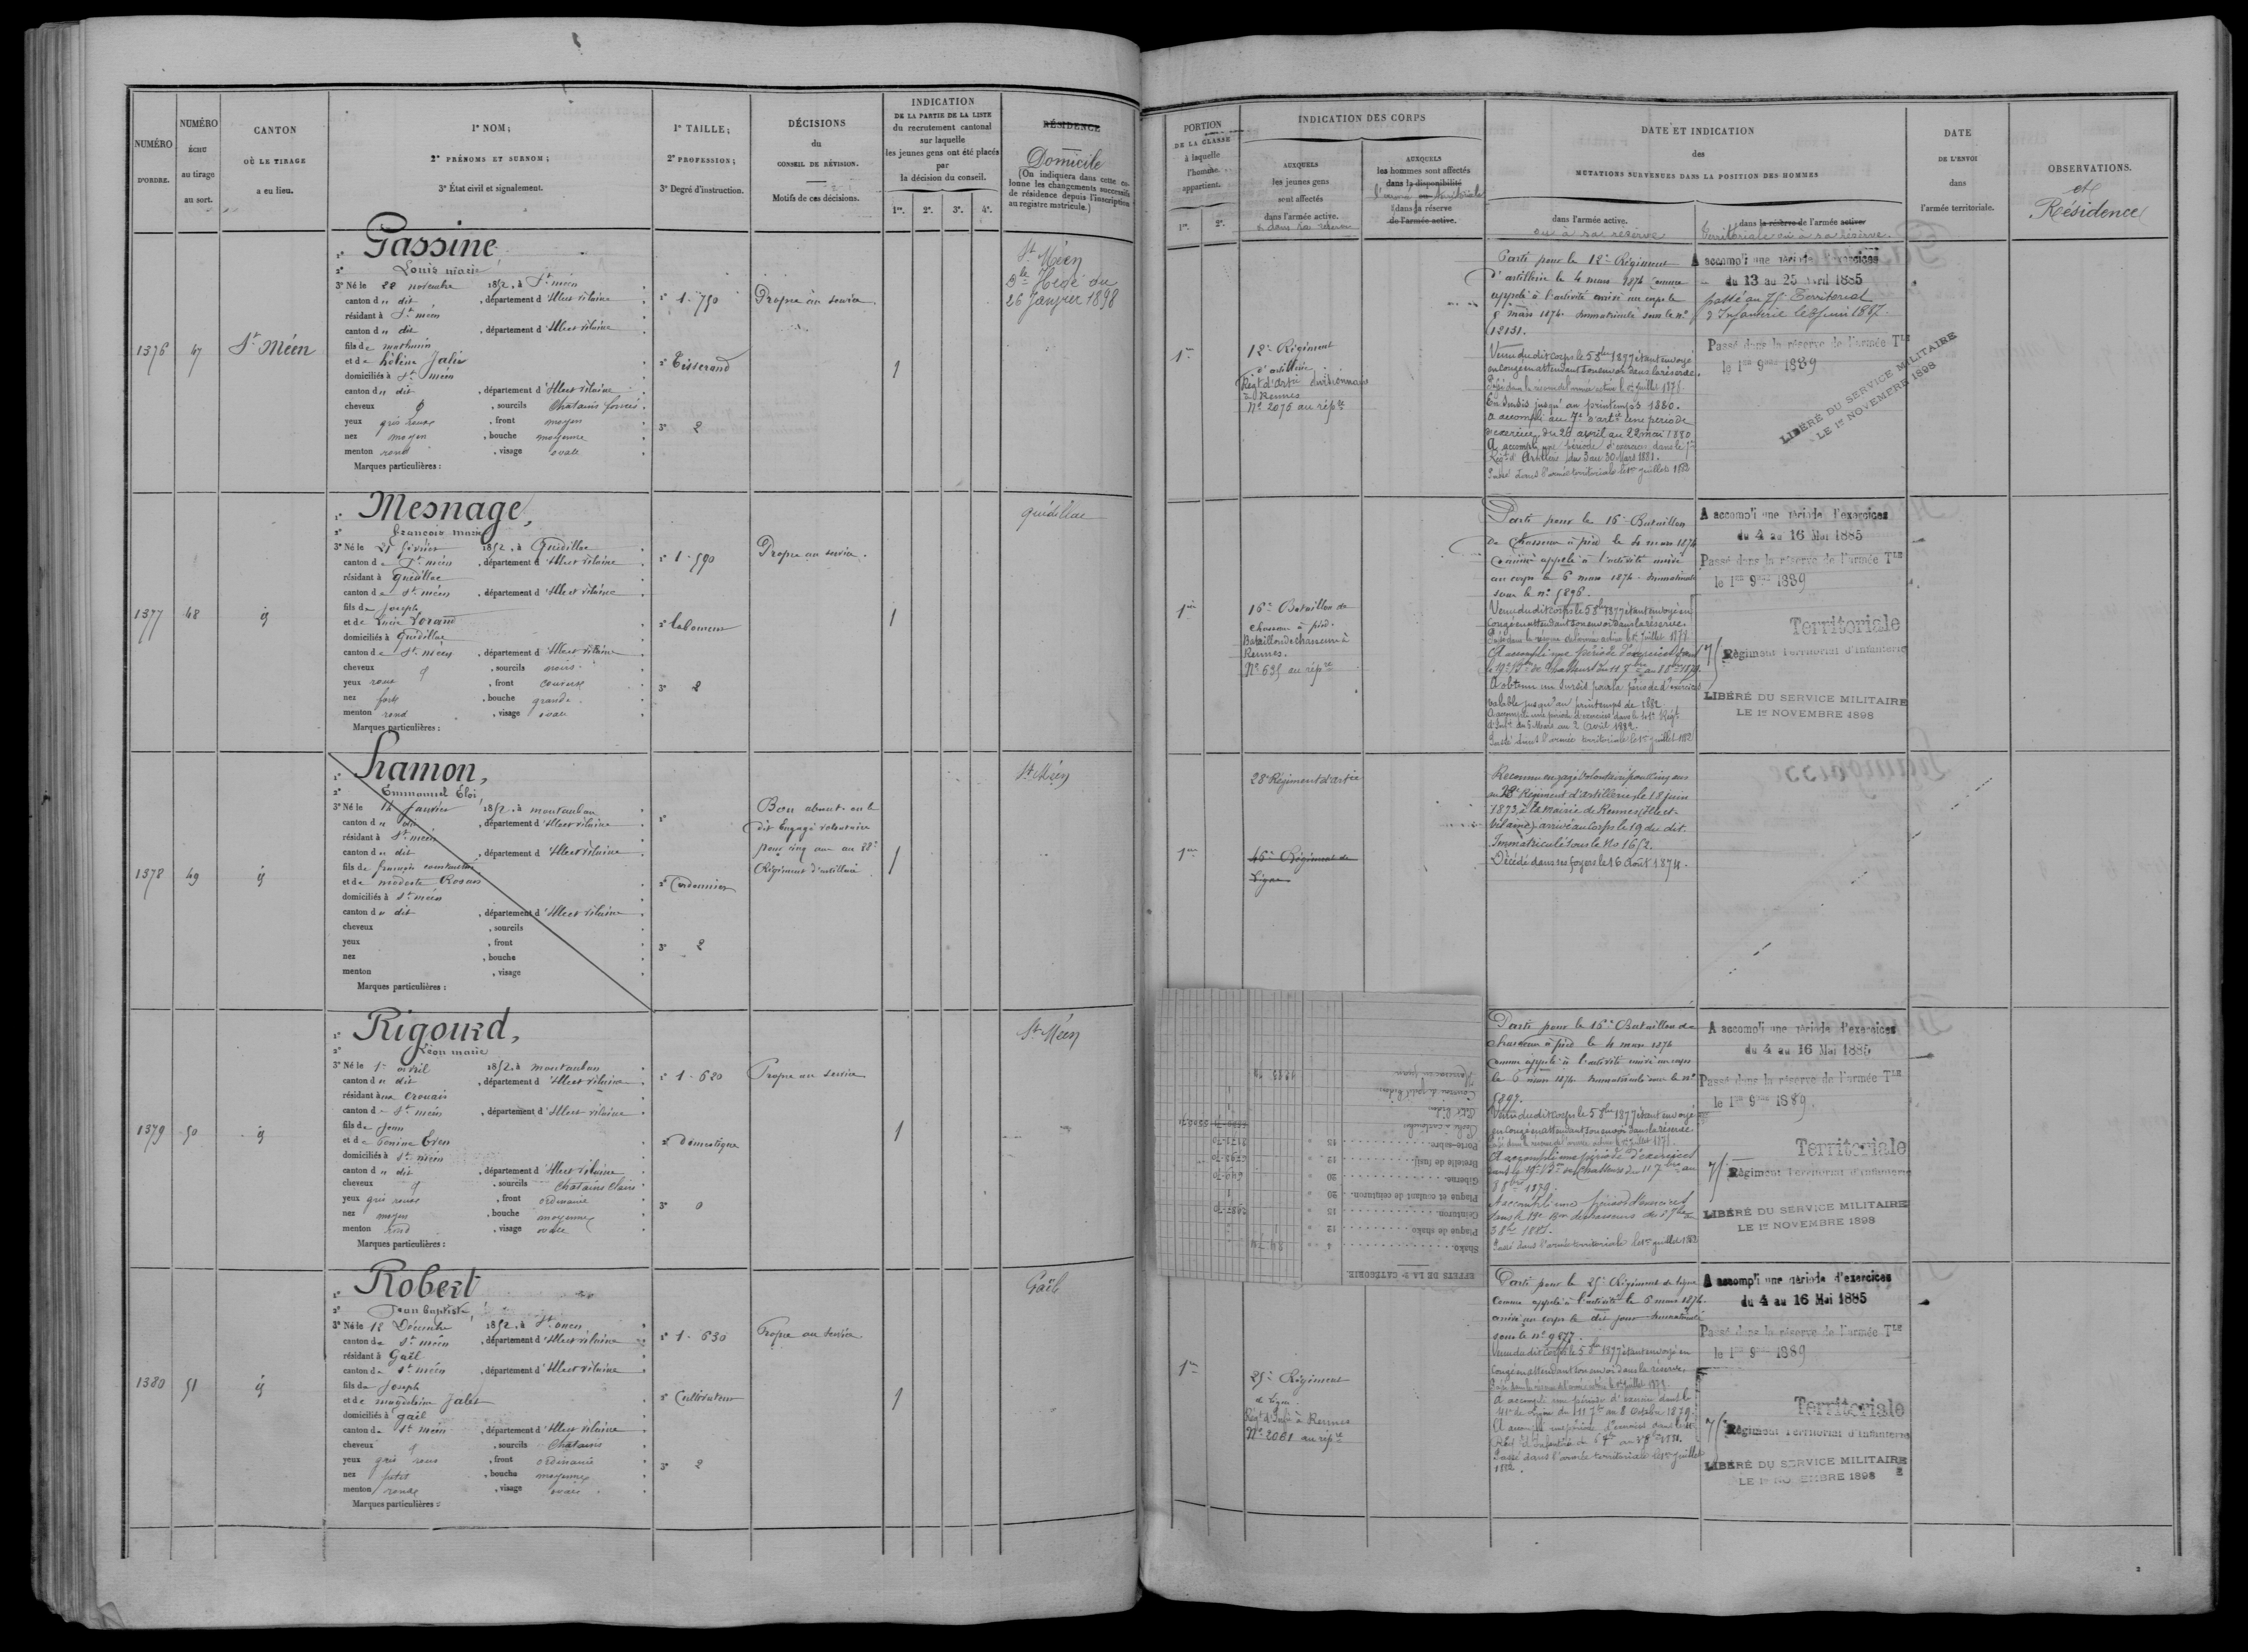 NUMÉRO
D'ORDRE.
NUMÉRO
ÉCHU
au tirage
au sort.
CANTON
OÙ LE TIRAGE
a eu lieu.
1° NOM;
2° PRÉNOMS ET SURNOM;
3° État civil et signalement.
1° TAILLE;
2° PROFESSION;
3° Degré d'instruction.
DÉCISIONS
du
CONSEIL DE RÉVISION.
Motifs de ces décisions.
INDICATION
DE LA PARTIE DE LA LISTE
du recrutement cantonal
sur laquelle
les jeunes gens ont été placés
par
la décision du conseil.
1re. 2e. 3e. 4e.
RÉSIDENCE
Domicile
(On indiquera dans cette co-
lonne les changements successifs
de résidence depuis l'inscription
au registre matricule.)
1376
47
St Méen
1° Gassine
2° Louis marie
3° Né le 22 novembre 1852, à St méen
canton du dit, département d'Ille et vilaine
résidant à St méen
canton du dit, département d'Ille et vilaine
fils de mathurin
et de hélène Jahier
domiciliés à St méen
canton du dit, département d'Ille et vilaine
cheveux, sourcils Chatains foncés
yeux gris roux, front moyen
nez moyen, bouche moyenne
menton rond, visage ovale
Marques particulières :
1° 1.750
2° Tisserand
3° 2
Propre au service
1
St Méen
Hédé du
26 Janvier 1898
1377
48
id
1° Mesnage,
2° François marie
3° Né le 21 février 1852, à Quédillac
canton de St méen, département d'Ille et vilaine
résidant à Quédillac
canton de St méen, département d'Ille et vilaine
fils de Joseph
et de Lorand
domiciliés à Quédillac
canton de St méen, département d'Ille et vilaine
cheveux, sourcils noirs
yeux roux, front couvert
nez fort, bouche grande
menton rond, visage ovale
Marques particulières :
1° 1.590
2° laboureur
3° 2
Propre au service.
1
Quédillac
1378
49
id
1° Hamon,
2° Emmanuel Eloi
3° Né le 14 Janvier 1852, à montauban
canton du dit, département d'Ille et vilaine
résidant à St méen
canton du dit, département d'Ille et vilaine
fils de françois constant
et de modeste Rosais
domiciliés à St méen
canton du dit, département d'Ille et vilaine
cheveux, sourcils
yeux, front
nez, bouche
menton, visage
Marques particulières :
1°
2° Cordonnier
3° 2
Bon absent
dit Engagé volontaire
pour cinq ans au 28e
Régiment d'artillerie
1
St Méen
1379
50
id
1° Rigourd,
2° Léon marie
3° Né le 1er avril 1852, à montauban
canton du dit, département d'Ille et vilaine
résidant au Crouais
canton de St méen, département d'Ille et vilaine
fils de Jean
et de
domiciliés à St méen
canton du dit, département d'Ille et vilaine
cheveux, sourcils Chatains clairs
yeux gris roux, front ordinaire
nez moyen, bouche moyenne
menton rond, visage ovale
Marques particulières :
1° 1.620
2° domestique
3° 0
Propre au service
1
St Méen
1380
51
id
1° Robert
2° Jean baptiste
3° Né le 12 Décembre 1852, à St onen
canton de St méen, département d'Ille et vilaine
résidant à Gaël
canton de St méen, département d'Ille et vilaine
fils de Joseph
et de magdeleine Jalet
domiciliés à gaël
canton de St méen, département d'Ille et vilaine
cheveux, sourcils Chatains
yeux gris roux, front ordinaire
nez petit, bouche moyenne
menton rond, visage ovale
Marques particulières :
1° 1.630
2° Cultivateur
3° 2
Propre au service
1
Gaël
PORTION
DE LA CLASSE
à laquelle
l'homme
appartient.
1re. 2e.
INDICATION DES CORPS
AUXQUELS
les jeunes gens
sont affectés
dans l'armée active.
& dans sa réserve
AUXQUELS
les hommes sont affectés
dans la disponibilité
l'armée territoriale
dans la réserve
de l'armée active.
DATE ET INDICATION
des
MUTATIONS SURVENUES DANS LA POSITION DES HOMMES
dans l'armée active.
ou à sa réserve
dans la réserve de l'armée active
territoriale ou à sa réserve
DATE
DE L'ENVOI
dans
l'armée territoriale.
OBSERVATIONS.
et
Résidence
1re
12e Régiment
d'artillerie
Regt d'artie divisionnaire
à Rennes
No 2076 au répre
Parti pour le 12e Régiment
d'artillerie le 4 mars 1874 comme
appelé à l'activité arrivé au corps le
5 mars 1874 Immatriculé sous le no
12131.
Venu dudit corps le 5 8bre 1877 étant envoyé
en congé en attendant son envoi dans la réserve.
Passé dans la réserve de l'armée active le 1er juillet 1878.
En sursis jusqu'au printemps 1880.
a accompli au 7e d'artie une période
d'exercices du 26 avril au 22 mai 1880
A accompli une période d'exercices dans le
Regt d'Artillerie du 3 au 30 Mars 1881.
Passé dans l'armée territoriale le 1er juillet 1883
A accompli une période d'exercices
du 13 au 25 Avril 1885
passé au 75e Territorial
d'Infanterie le 8 juin 1887.
Passé dans la réserve de l'armée Tle
le 1er 9bre 1889
LIBÉRÉ DU SERVICE MILITAIRE
LE 1er NOVEMBRE 1898
1re
16e Bataillon de
chasseurs à pied.
Bataillon de chasseurs à
Rennes.
No 635 au répre
Parti pour le 16e Bataillon
de Chasseurs à pied le 4 mars 1874
comme appelé à l'activité arrivé
au corps le 6 mars 1874. Immatriculé
sous le no 5896.
Venu dudit corps le 5 8bre 1877 étant envoyé en
congé en attendant son envoi dans la réserve.
Passé dans la réserve de l'armée active le 1er Juillet 1878
A accompli une période d'exercices dans
le 19e Bon de Chasseurs du 11 7bre au 8 8bre 1879.
A obtenu un sursis pour la période d'exercices
valable jusqu'au printemps de 1882
A accompli une période d'exercices dans le 41e Régt
d'Infie du 6 Mars au 2 Avril 1882.
Passé dans l'armée territoriale le 1er juillet 1882
A accompli une période d'exercices
du 4 au 16 Mai 1885
Passé dans la réserve de l'armée Tle
le 1er 9bre 1889
Territoriale
75 Régiment Territorial d'Infanterie
LIBÉRÉ DU SERVICE MILITAIRE
LE 1er NOVEMBRE 1898
1re
28e Régiment d'artie
46e Régiment de
Ligne
Reconnu engagé volontaire pour cinq ans
au 28e Régiment d'artillerie, le 18 juin
1873 à la mairie de Rennes (Ille et
Vilaine) arrivé au corps le 19 du dit.
Immatriculé sous le No 1652.
Décédé dans ses foyers le 16 Août 1874.
EFFETS DE LA 2e CATÉGORIE
Shako
Plaque de shako
Ceinturon
Plaque et coulant de ceinturon
Giberne
Bretelle de fusil
Porte-sabre
Parti pour le 16e Bataillon de
chasseurs à pied le 4 mars 1874
comme appelé à l'activité arrivé au corps
le 6 mars 1874 Immatriculé sous le no
5899.
Venu dudit corps le 5 8bre 1877 étant envoyé
en congé en attendant son envoi dans la réserve
Passé dans la réserve de l'armée active le 1er Juillet 1878.
A accompli une période d'exercices
dans le 19e Bon de Chasseurs du 11 7bre au
8 8bre 1879.
A accompli une période d'exercices
dans le 19e Bon de chasseurs
Passé dans l'armée territoriale le 1er juillet 1882
A accompli une période d'exercices
du 4 au 16 Mai 1885
Passé dans la réserve de l'armée Tle
le 1er 9bre 1889
Territoriale
75 Régiment Territorial d'Infanterie
LIBÉRÉ DU SERVICE MILITAIRE
LE 1er NOVEMBRE 1898
1re
25e Régiment
de ligne
Regt d'Infie à Rennes
No 2061 au répre
Parti pour le 25e Régiment de ligne
comme appelé à l'activité le 6 mars 1874
arrivé au corps le dit jour Immatriculé
sous le no 9677.
Venu du dit corps le 5 8bre 1877 étant envoyé en
congé en attendant son envoi dans la réserve
Passé dans la réserve de l'armée active le 1er juillet 1878
A accompli une période d'exercices dans le
41e de Ligne du 11 7bre au 8 Octobre 1879.
A accompli une période d'exercices dans le
Régt d'Infanterie
Passé dans l'armée territoriale le 1er juillet
1882.
A accompli une période d'exercices
du 4 au 16 Mai 1885
Passé dans la réserve de l'armée Tle
le 1er 9bre 1889
Territoriale
75 Régiment Territorial d'Infanterie
LIBÉRÉ DU SERVICE MILITAIRE
LE 1er NOVEMBRE 1898